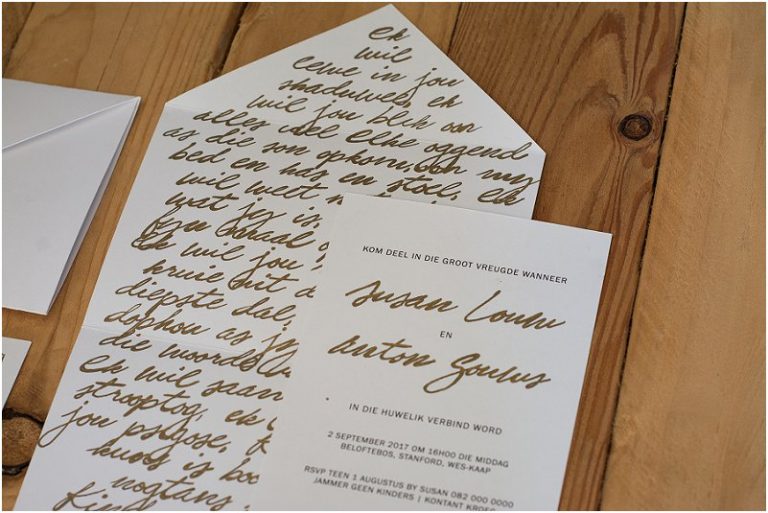 Ek
wil
eewe in jou
skaduwee, ek
wil jou blik oor
alles wel Elke oggend
as die son opkom, oor my
bed en kas en stoel. Ek
wil weet
wat jy is.
Een
Ek wil jou
kruie uit d
diepste dal,
as jy
die woorde
Ek wil saam
strooptog, ek
jou
is boo
nogtans.
KOM DEEL IN DIE GROOT VREUGDE WANNEER
Susan Louw
EN
Anton Goulus
IN DIE HUWELIK VERBIND WORD
2 SEPTEMBER 2017 OM 16H00 DIE MIDDAG
BELOFTEBOS, STANFORD, WES-KAAP
RSVP TEEN 1 AUGUSTUS BY SUSAN 082 000 0000
JAMMER GEEN KINDERS | KONTANT KROEG